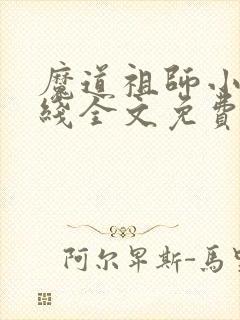 魔道祖師小
綫全文免費
阿尔卑斯-馬